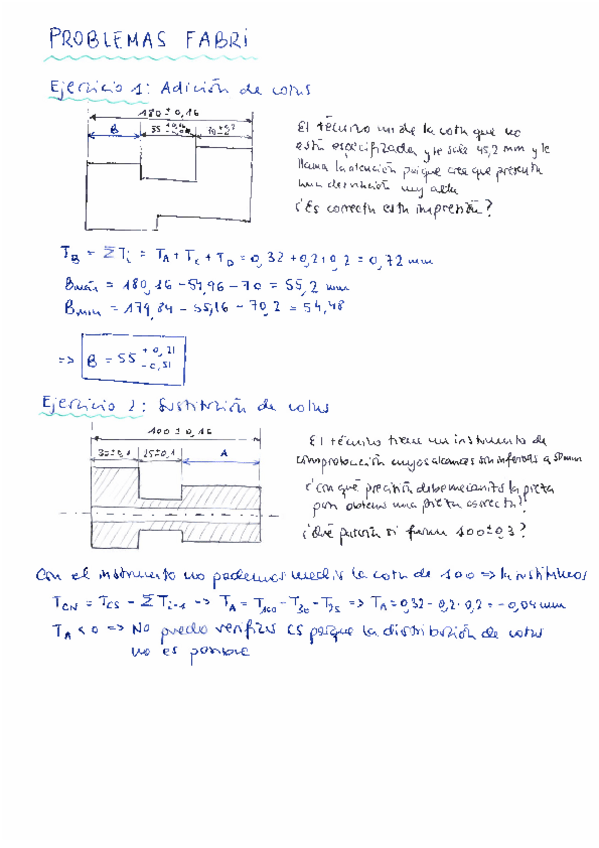 PROBLEMAS FABRI
Ejercicio 1: Adición de cotas
180 ± 0,16
B
El técnico mide la cota que no
está especificada y le sale 45,2 mm y le
llama la atención porque cree que presenta
una desviación muy alta
¿Es correcta esta impresión?
T_B = ΣT_i = T_A + T_C + T_D = 0,32 + 0,2 + 0,2 = 0,72 mm
Bmáx = 180,16 - 54,96 - 70 = 55,2 mm
Bmín = 179,84 - 55,16 - 70,2 = 54,48
=> B = 55 +0,21 -0,51
Ejercicio 2: Sustitución de cotas
100 ± 0,16
30±0,1 25±0,1 A
El técnico tiene un instrumento de
comprobación cuyos alcances son inferiores a 50 mm
¿Con qué precisión debe mecanizar la pieza
para obtener una pieza correcta?
¿Qué pasaría si fuera 100±0,3?
Con el instrumento no podemos medir la cota de 100 => la sustituimos
T_CN = T_CS - ΣT_i-1 => T_A = T_100 - T_30 - T_25 => T_A = 0,32 - 0,2 - 0,2 = -0,04 mm
T_A < 0 => No puedo verificar CS porque la distribución de cotas
no es posible